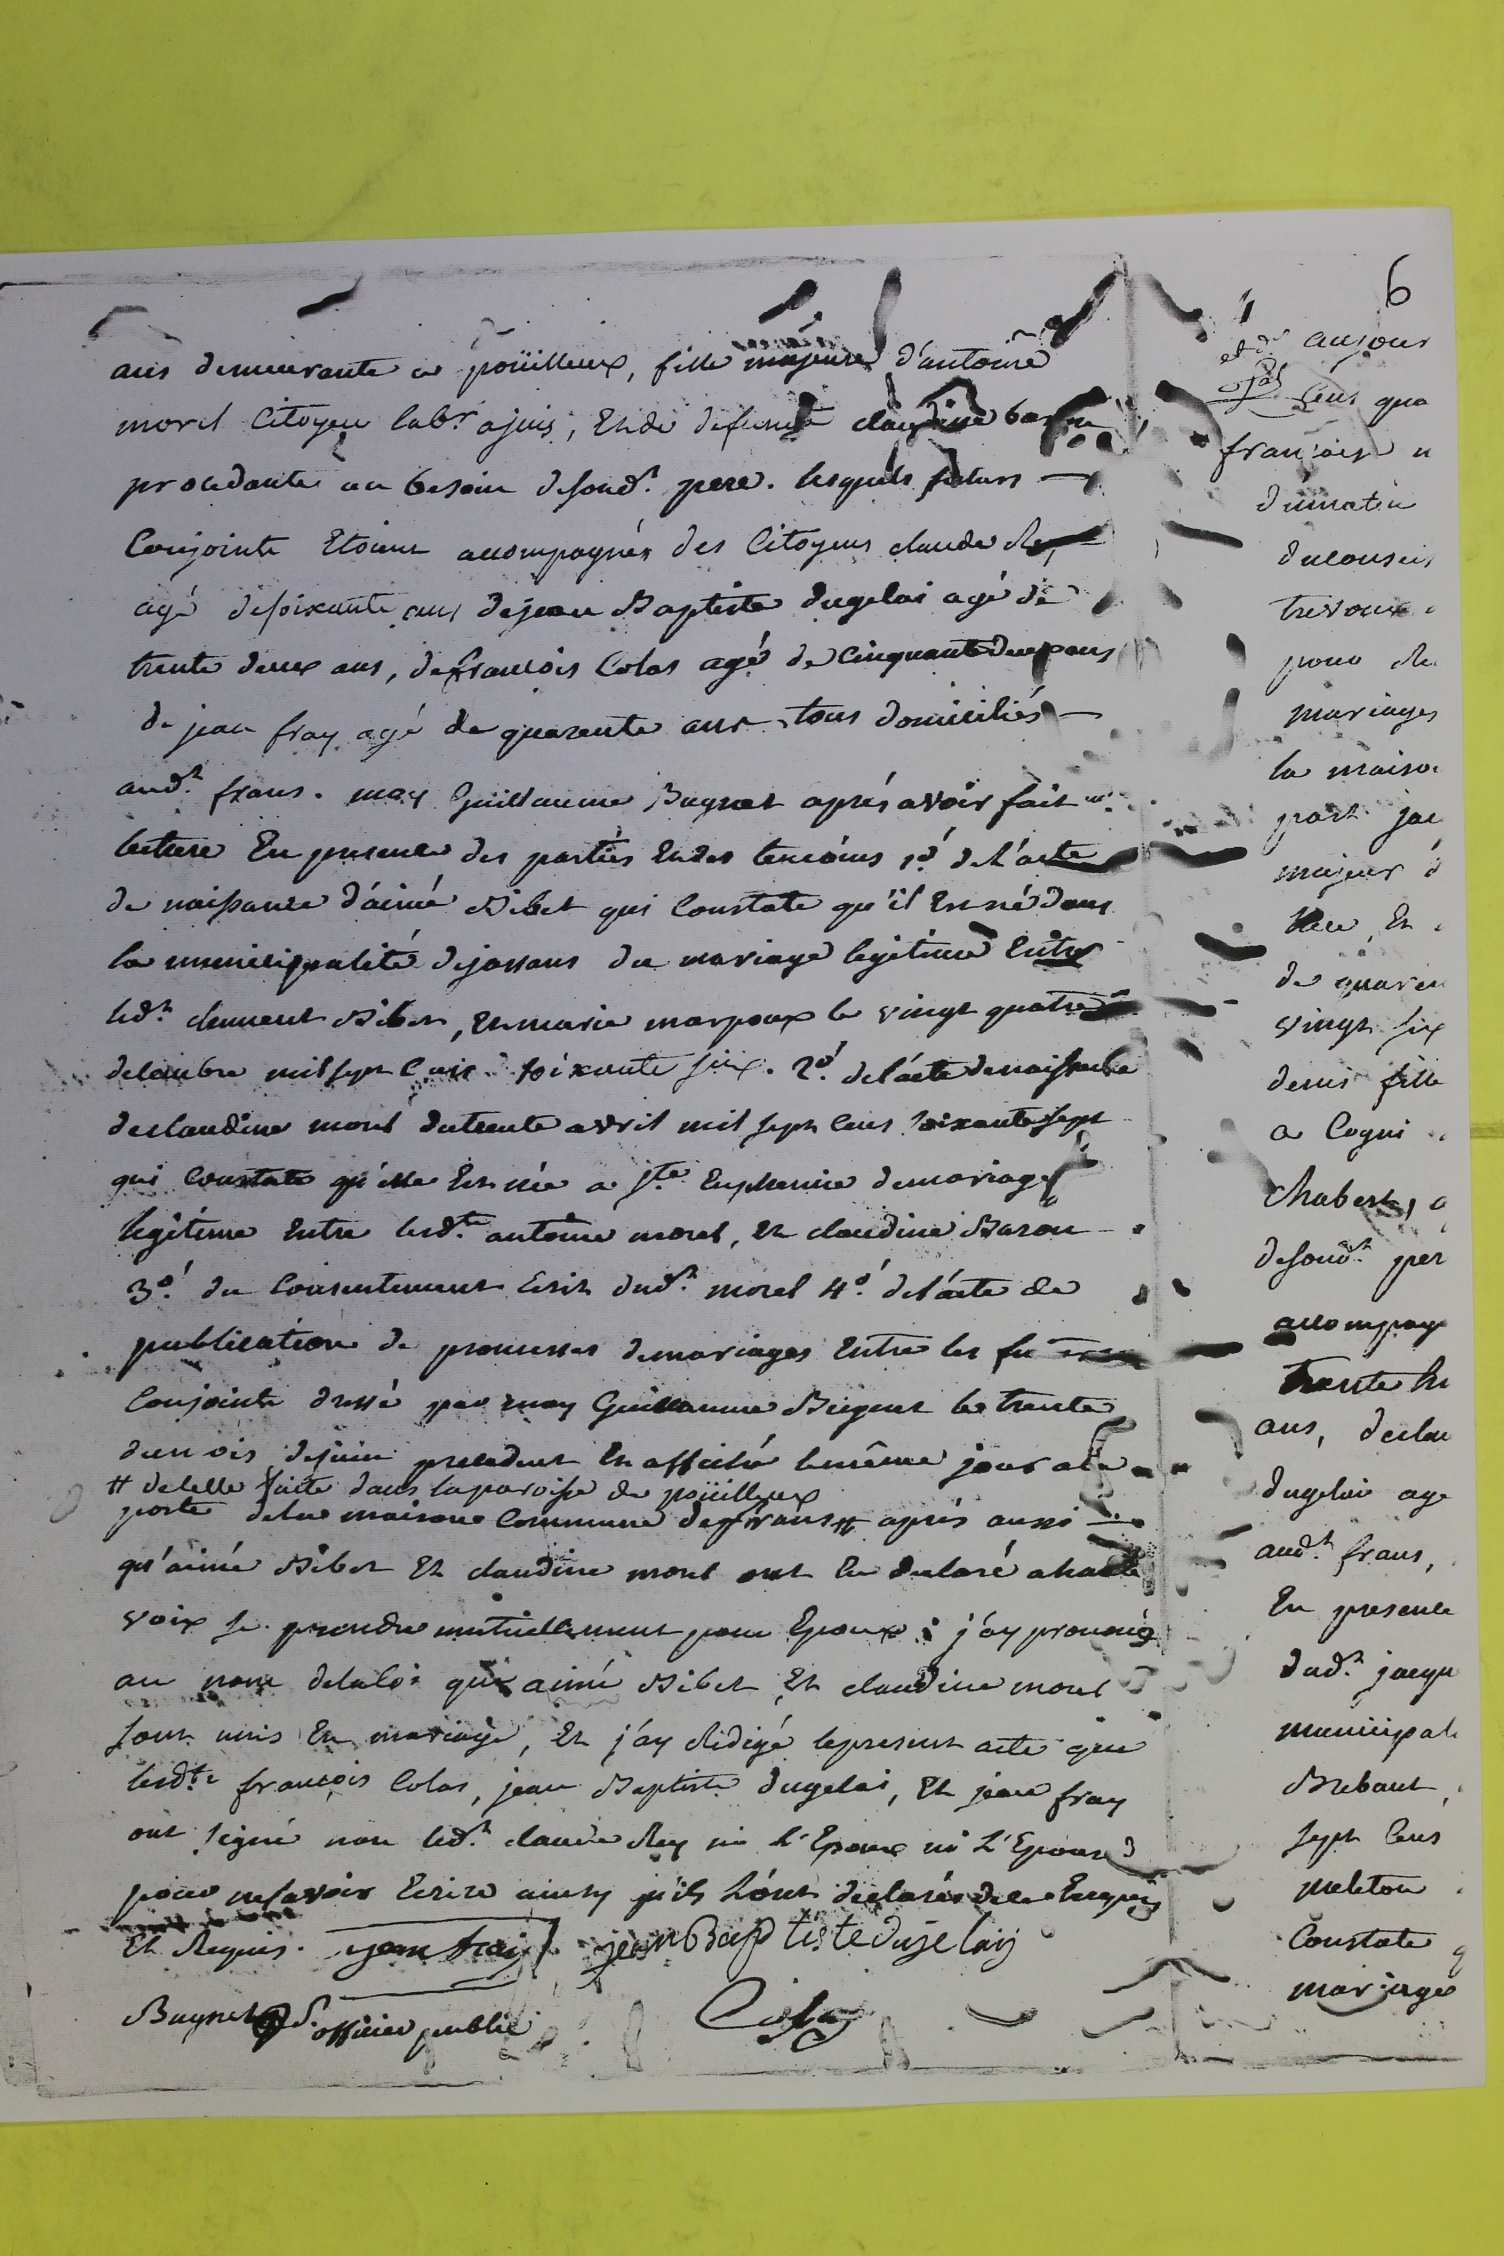 ans demeurante a poüilleux, fille majeure d'antoine
morel Citoyen labr. ajuis, Et de defuncte claudine baron
procedante au besoin de sond.t pere. lesquels futurs
Conjoints Etoient accompagnés des Citoyens claude Rey
agé de soixante ans de jean Baptiste dugelai agé de
trente deux ans, de francois Colas agé de Cinquante deux ans
de jean fray agé de quarente ans tous domiciliés
aud.t frans. moy Guillaume Bugnet aprés avoir fait
lecture En presence des partiés Et des temoins 1.º de l'acte
de naissance d'aimé Bibet qui Constate qu'il Est né dans
la municipalité de jassans du mariage legitime Entre
led.t clement Bibet, Et marie marpoux le vingt quatre
decembre mil sept Cent soixante six. 2.º de l'acte de naissance
de claudine morel du trente avril mil sept Cens soixante sept
qui Constate qu'elle Est née a s.te Euphemie de mariage
legitime Entre led.t antoine morel, Et claudine Baron
3.º du Consentement Ecrit dud.t morel 4.º de l'acte de
publication de promesses de mariages Entre les futurs
Conjoints dressé par moy Guillaume Bugnet le trente
du mois de juin precedent Et affiché le même jour a la
# de celle faite dans la paroisse de poüilleux
porte de la maison Commune de frans # aprés aussi
qu'aimé Bibet Et claudine morel ont Eu declaré a haute
voix se prendre mutuellement pour Epoux : j'ay prononcé
au nom de la loi que aimé Bibet Et claudine morel
sont unis En mariage, Et j'ay Redigé le present acte que
lesd.ts françois Colas, jean Baptiste dugelai, Et jean fray
ont signé non led.t claude Rey ni l'Epoux ni L'Epouse
pour ne savoir Ecrire ainsy qu'ils L'ont declaré de ce Enquis
Et Requis. jean fray jean Baptiste dujelay
Bugnet officier public Colas
6
aujour
Cens qua
francoise
du matin
du conseil
trevoux
pour
mariages
la maison
part jac
majeur d
Et
de quaren
vingt six
denis fille
a Cogni
Chabert,
de sond.t per
accompag
trente hu
ans, de clau
dugelai age
aud.t frans,
En presence
dud.t jacqu
municipal
Brebant
sept Cens
meleton
Constate q
mariage